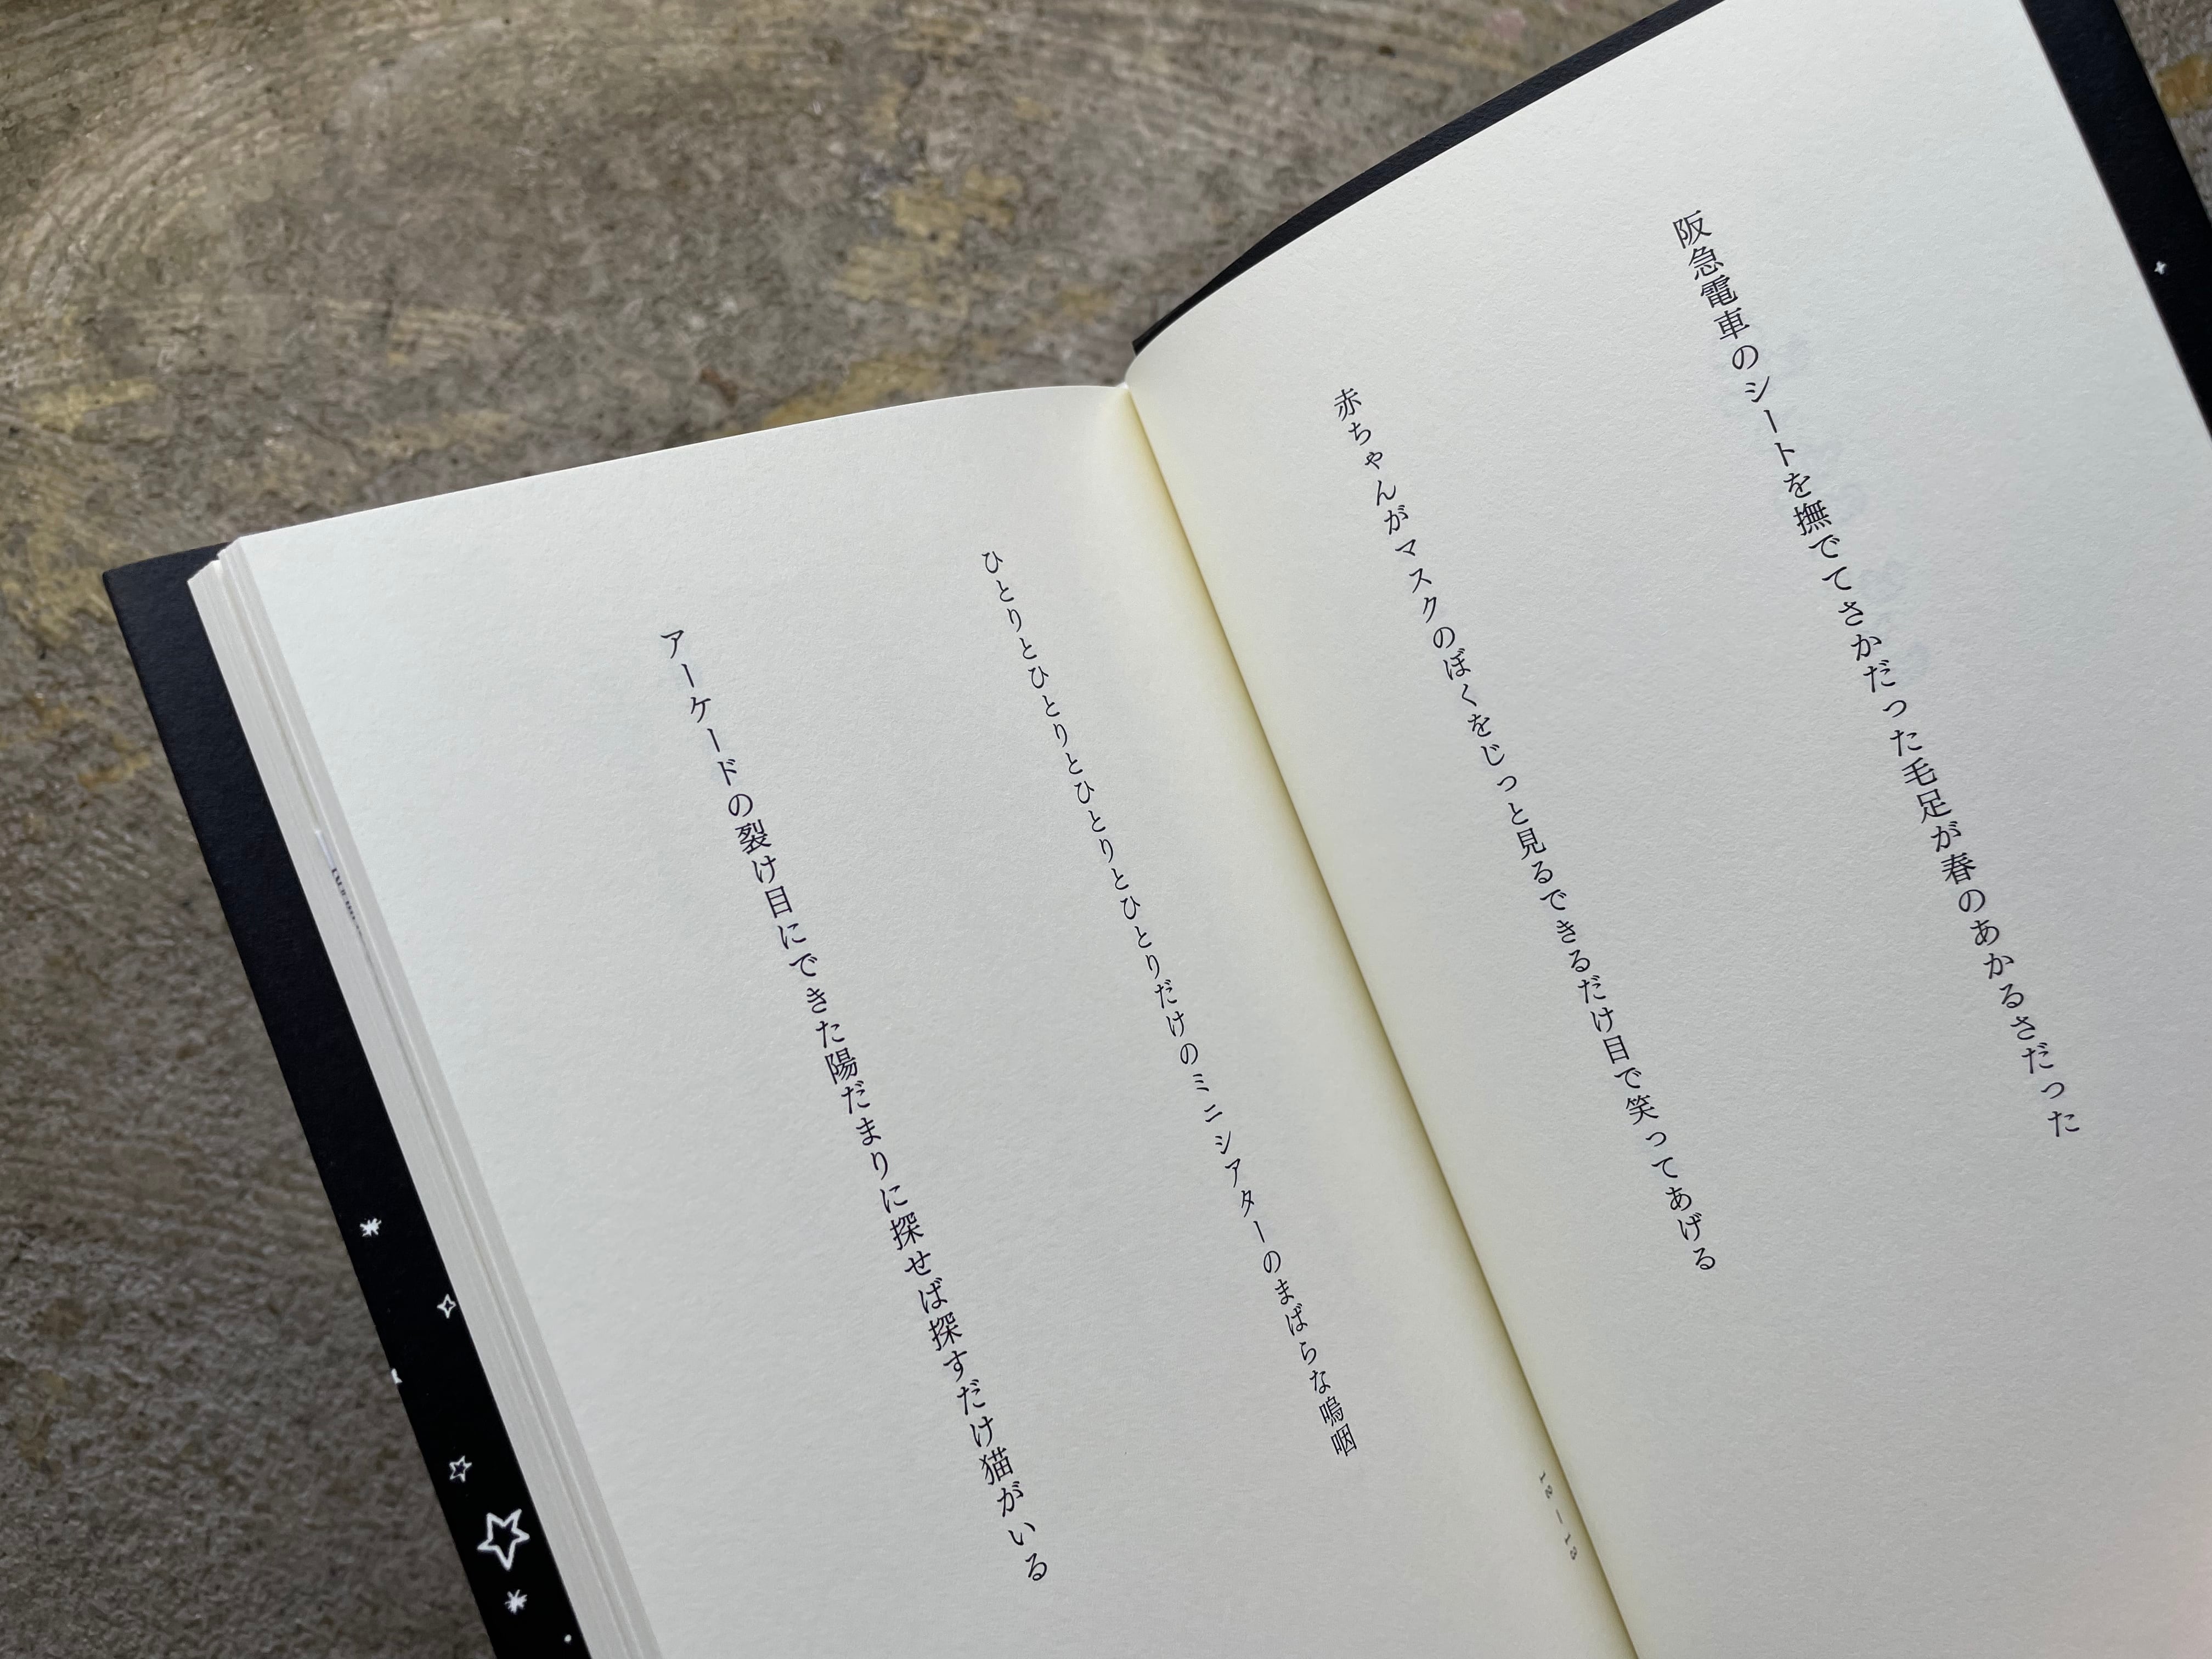 阪急電車のシートを撫でてさかだった毛足が春のあかるさだった
赤ちゃんがマスクのぼくをじっと見るできるだけ目で笑ってあげる
ひとりとひとりとひとりとひとりとひとりだけのミニシアターのまばらな嗚咽
アーケードの裂け目にできた陽だまりに探せば探すだけ猫がいる
12 — 13